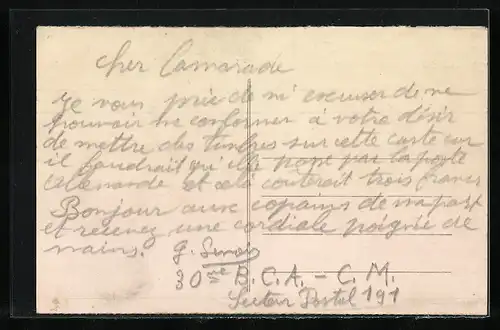 Cher Camarade
Je vous prie de m'excuser de ne
pouvoir me conformer à votre désir
de mettre des timbres sur cette carte car
il faudrait qu'elle passe par la poste
Allemande et cela couterait trois francs
Bonjour aux copains de ma part
et recevez une cordiale poignée de
mains.
30me B.C.A. - C.M.
Secteur Postal 191